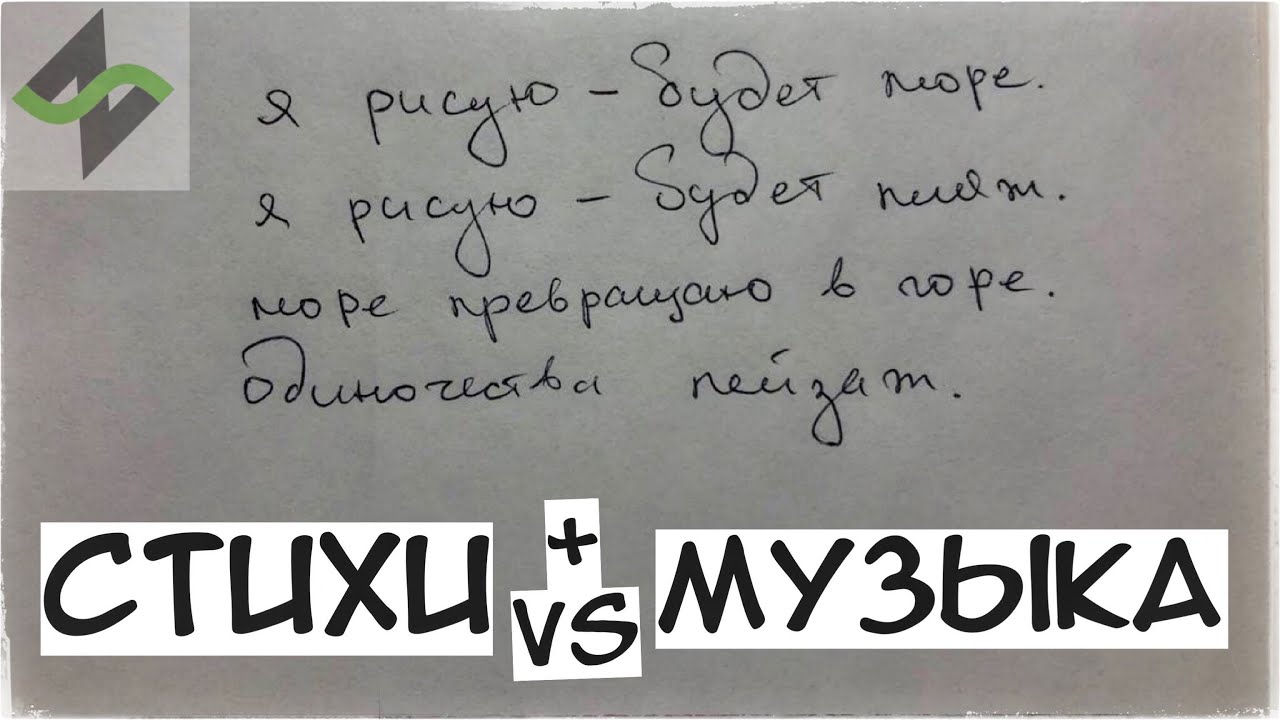 я рисую – будет море.
я рисую – будет пляж.
море превращаю в горе.
одиночества пейзаж.
СТИХИ + VS МУЗЫКА